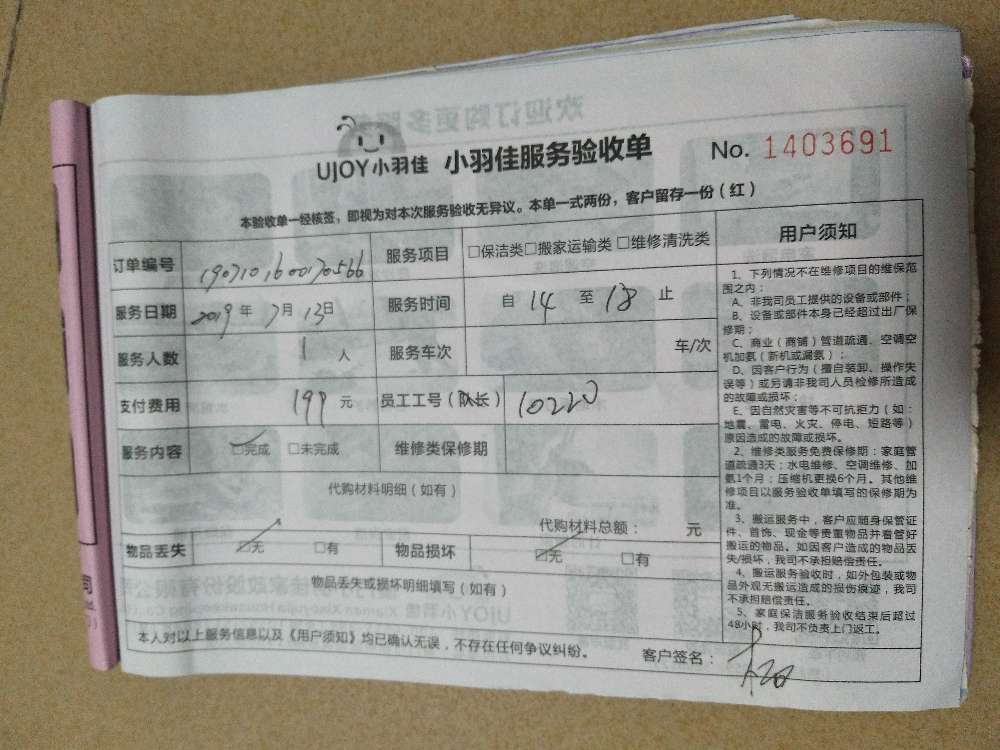 UJOY小羽佳 小羽佳服务验收单 No. 1403691
本验收单一经核签，即视为对本次服务验收无异议。本单一式两份，客户留存一份（红）
订单编号 1907101600170566 服务项目 □保洁类□搬家运输类□维修清洗类
服务日期 2019 年 7 月 13 日 服务时间 自 14 至 18 止
服务人数 1 人 服务车次 车/次
支付费用 199 元 员工工号（队长） 10220
服务内容 □完成 □未完成 维修类保修期
代购材料明细（如有）
代购材料总额： 元
物品丢失 □无 □有 物品损坏 □无 □有
物品丢失或损坏明细填写（如有）
本人对以上服务信息以及《用户须知》均已确认无误，不存在任何争议纠纷。
客户签名：
用户须知
1、下列情况不在维修项目的维保范
围之内：
A、非我司员工提供的设备或部件；
B、设备或部件本身已经超过出厂保
修期；
C、商业（商铺）管道疏通、空调空
机加氨（新机或漏氨）；
D、因客户行为（擅自装卸、操作失
误等）或另请非我司人员检修所造成
的故障或损坏；
E、因自然灾害等不可抗拒力（如：
地震、雷电、火灾、停电、短路等）
原因造成的故障或损坏。
2、维修类服务免费保修期：家庭管
道疏通3天；水电维修、空调维修、加
氨1个月；压缩机更换6个月。其他维
修项目以服务验收单填写的保修期为
准。
3、搬运服务中，客户应随身保管证
件、首饰、现金等贵重物品并看管好
搬运的物品。如因客户造成的物品丢
失/损坏，我司不承担赔偿责任。
4、搬运服务验收时，如外包装或物
品外观无搬运造成的损伤痕迹，我司
不承担赔偿责任。
5、家庭保洁服务验收结束后超过
48小时，我司不负责上门返工。